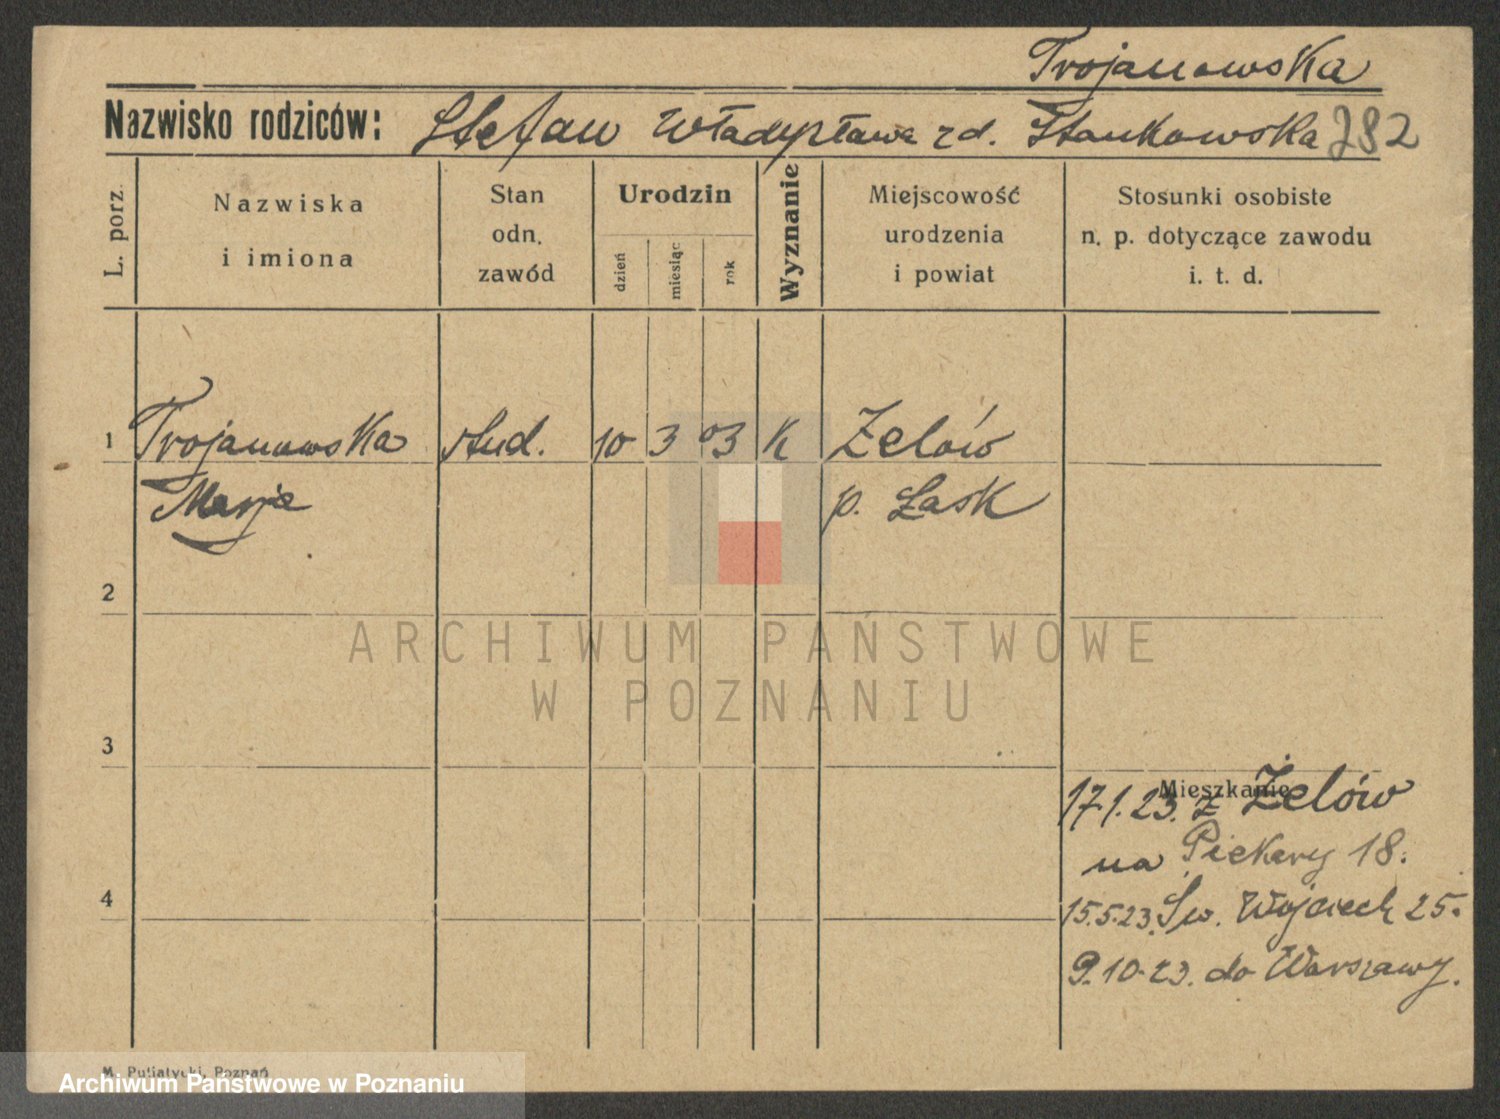 Trojanowska
Nazwisko rodziców: Stefan Władysława zd. Stankowska 782
L. porz.
Nazwiska
i imiona
Stan
odn.
zawód
Urodzin
dzień
miesiąc
rok
Wyznanie
Miejscowość
urodzenia
i powiat
Stosunki osobiste
n. p. dotyczące zawodu
i. t. d.
1 Trojanowska stud. 10 3 03 K Zelów
Marja p. Łask
2
ARCHIWUM PAŃSTWOWE
W POZNANIU
3
Mieszkanie
17.1.23. z Żelów
na Piekary 18.
4
15.5.23. Św. Wojciech 25.
9.10.23. do Warszawy.
M. Putiatycki, Poznań
Archiwum Państwowe w Poznaniu